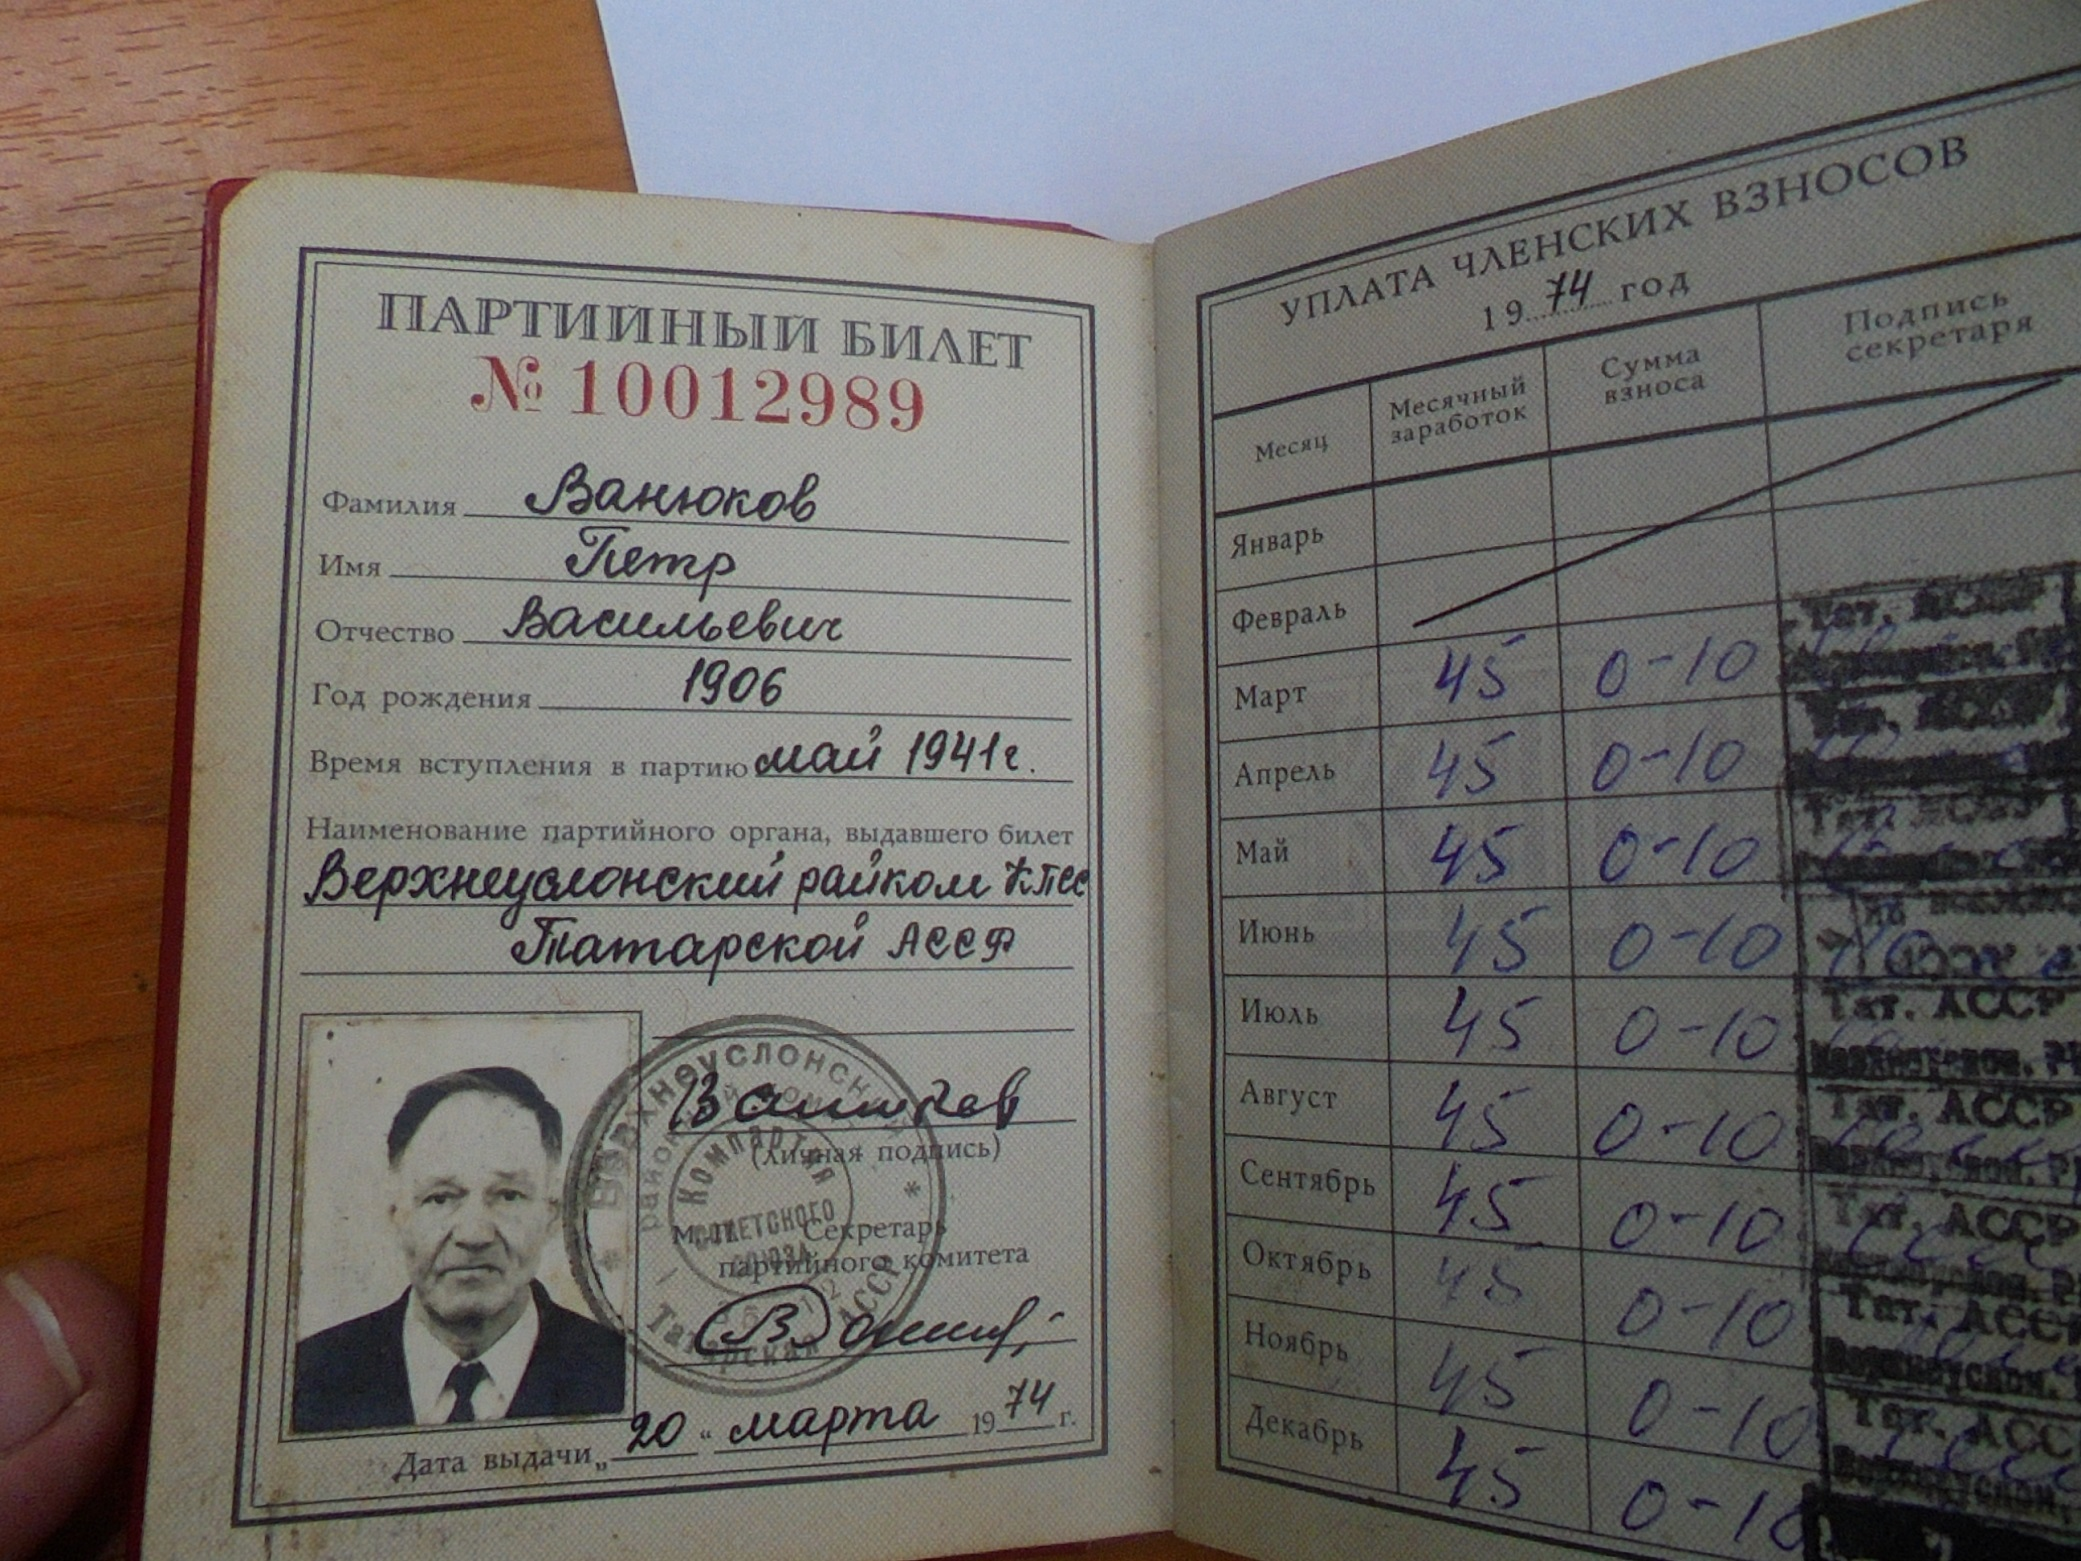 ПАРТИЙНЫЙ БИЛЕТ
№ 10012989
Фамилия Ванюков
Имя Петр
Отчество Васильевич
Год рождения 1906
Время вступления в партию май 1941г.
Наименование партийного органа, выдавшего билет
Верхнеуслонский райком КПСС
Татарской АССР
Ванюков
(личная подпись)
М. П. Секретарь
партийного комитета
Верхнеуслонский
районный
Компартия
Советского
Союза
Татарская АССР
Дата выдачи „20“ марта 1974 г.
УПЛАТА ЧЛЕНСКИХ ВЗНОСОВ
1974 год
Месяц Месячный заработок Сумма взноса Подпись секретаря
Январь
Февраль
Март 45 0-10 Тат. АССР
Апрель 45 0-10 Тат. АССР
Май 45 0-10 Тат. АССР
Июнь 45 0-10
Июль 45 0-10 Тат. АССР
Август 45 0-10 Тат. АССР
Сентябрь 45 0-10 Тат. АССР
Октябрь 45 0-10 Тат. АССР
Ноябрь 45 0-10 Тат. АСС
Декабрь 45 0-10